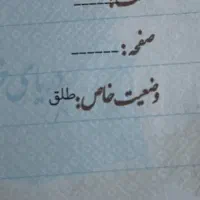 صفحه: ------
وضعیت خاص: طلق